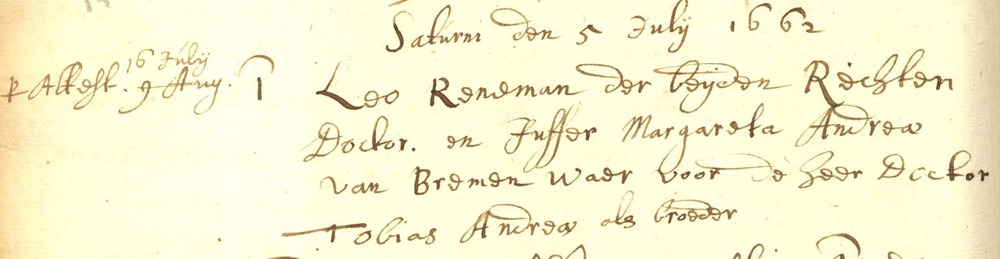 Saturni den 5 July 1662
16 July
p Attest. 9 Aug. 1
Leo Reneman der beyden Rechten
Doctor. en Juffer Margareta Andreæ
van Bremen waer voor de heer Doctor
Tobias Andreæ als broeder